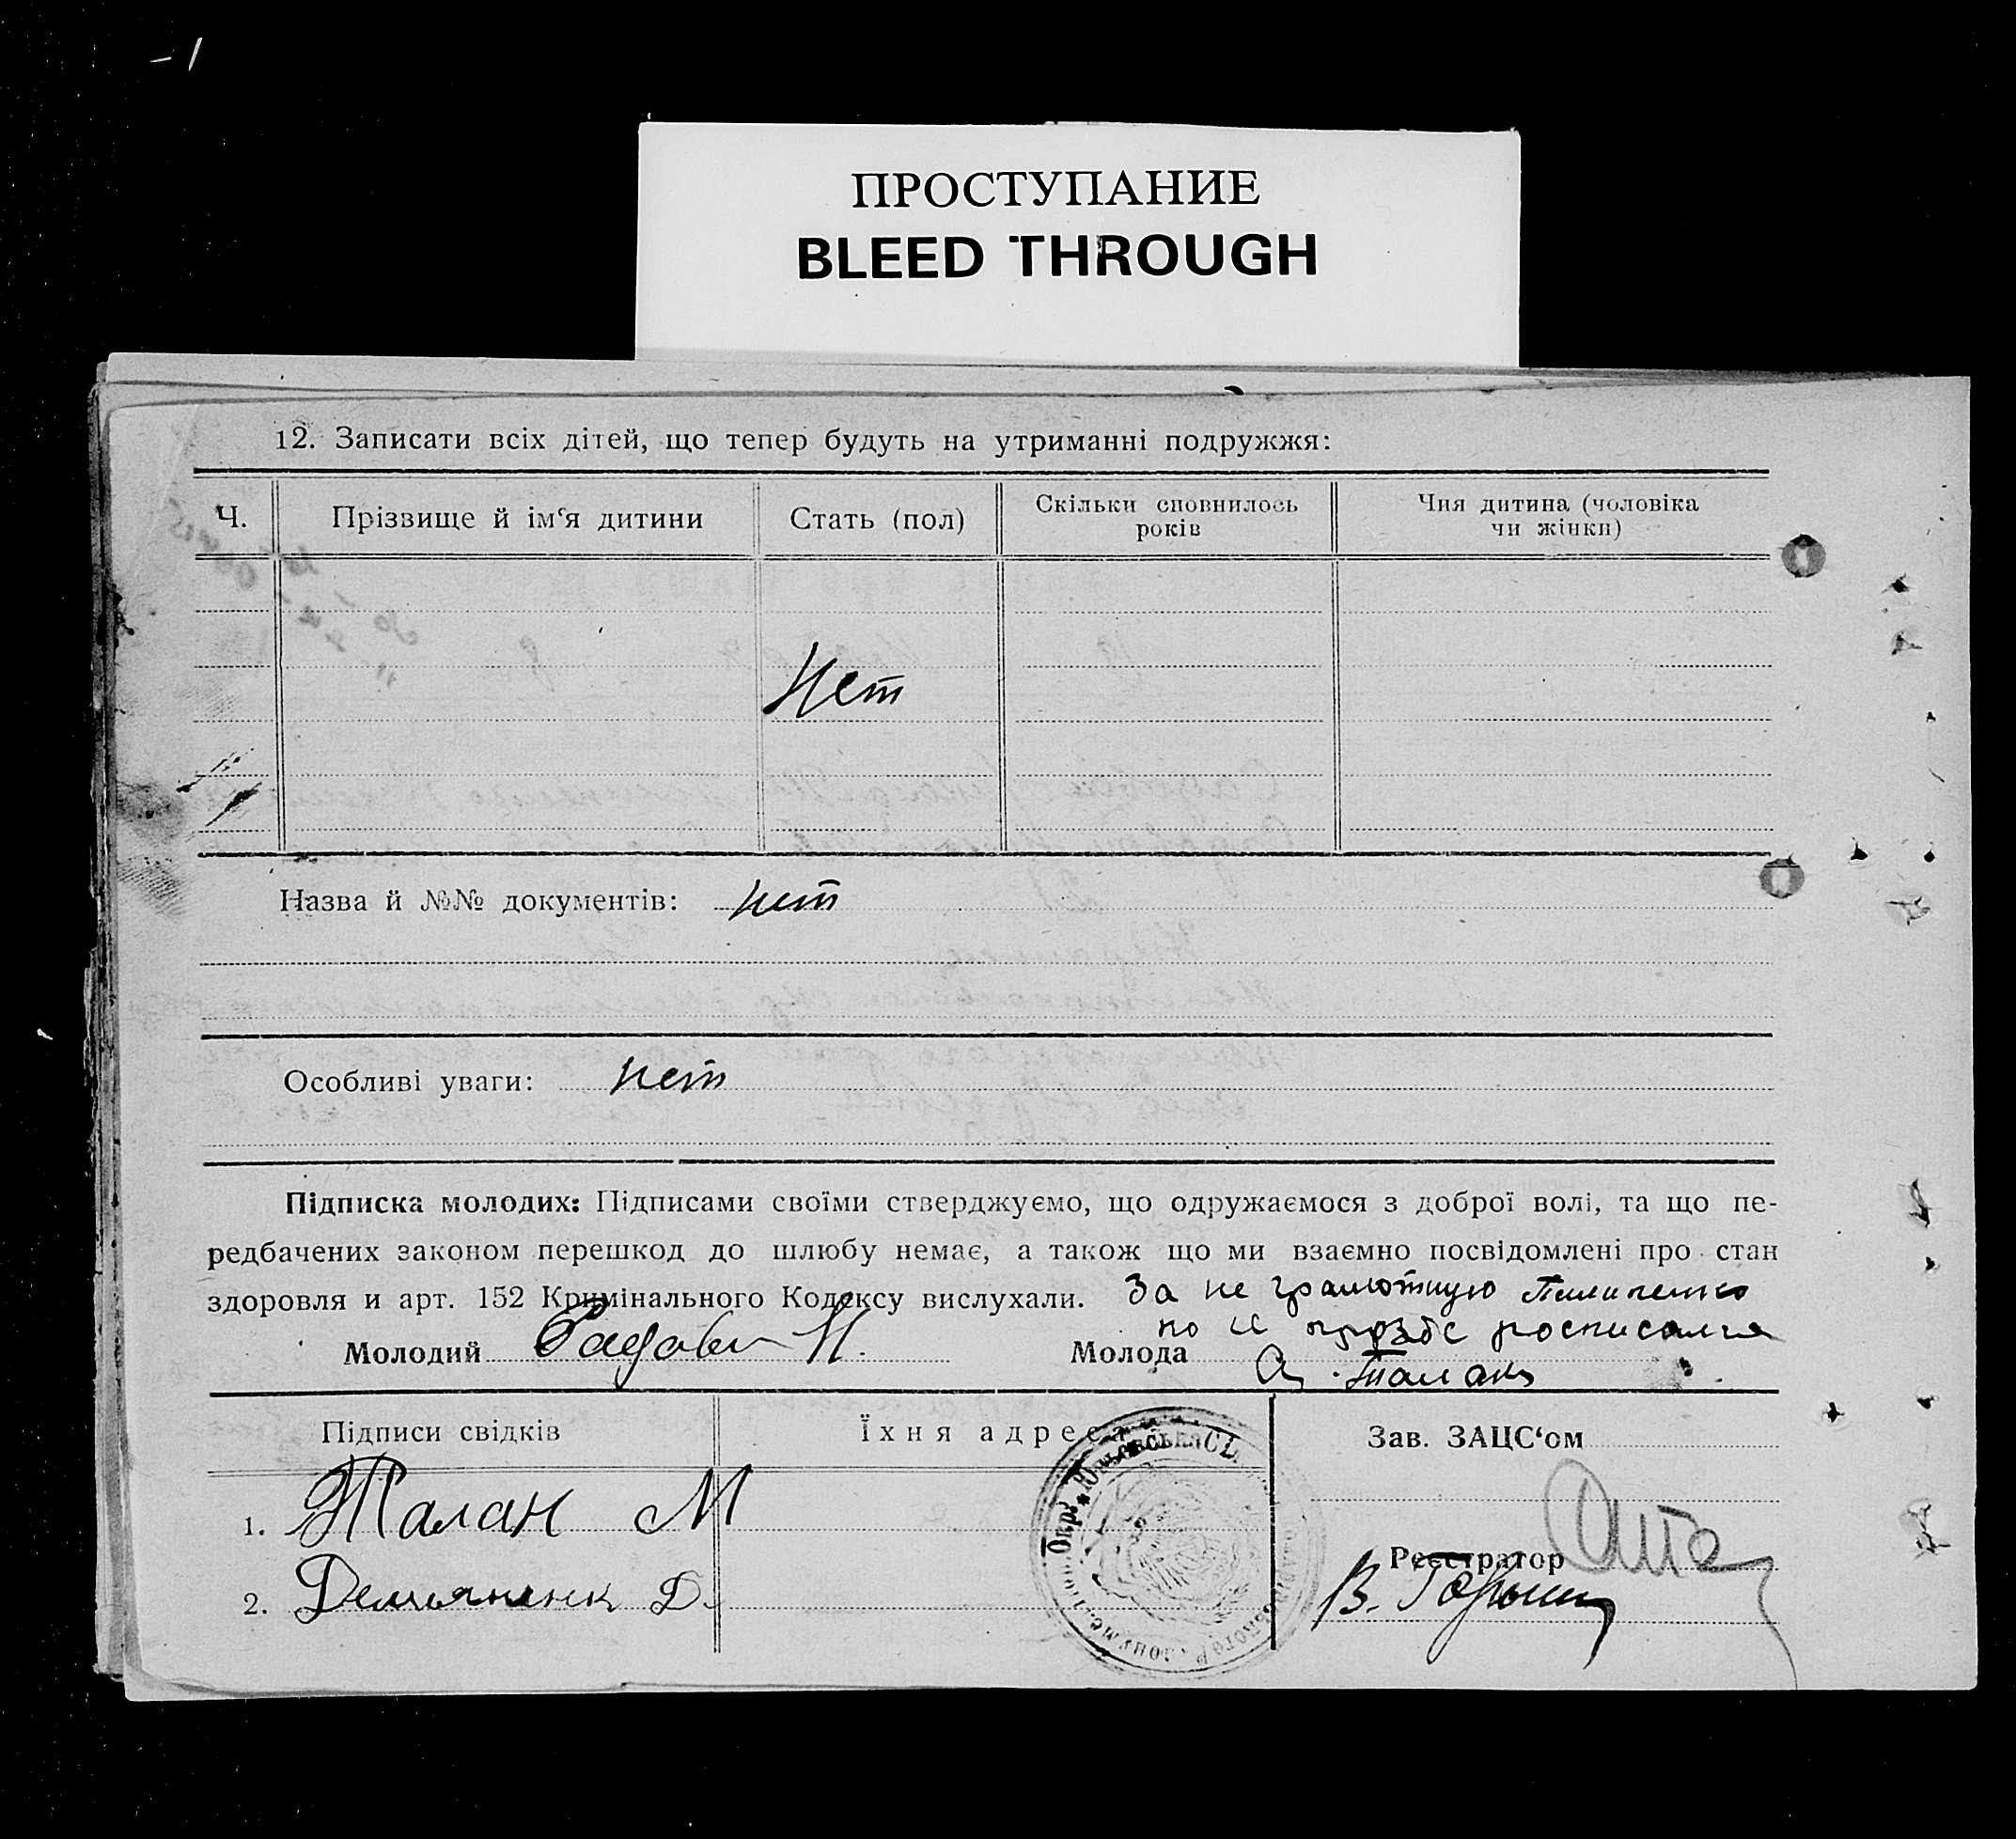 ПРОСТУПАНИЕ
BLEED THROUGH
12. Записати всіх дітей, що тепер будуть на утриманні подружжя:
Ч.
Прізвище й ім‘я дитини
Стать (пол)
Скільки сповнилось
років
Чия дитина (чоловіка
чи жінки)
Нет
Назва й №№ документів: нет
Особливі уваги: нет
Підписка молодих: Підписами своїми стверджуємо, що одружаємося з доброї волі, та що пе-
редбачених законом перешкод до шлюбу немає, а також що ми взаємно посвідомлені про стан
здоровля и арт. 152 Кримінального Кодексу вислухали. За не грамотную
по ее прозбе росписался
Молодий Садови Н. Молода
А. Талан
Підписи свідків
Їхня адреса
Зав. ЗАЦС‘ом
1. Талан М
Реєстратор
2. Демяненк Д.
В.